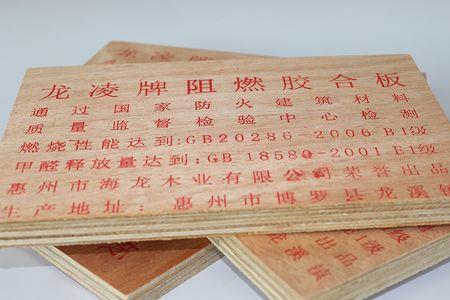 龙凌牌阻燃胶合板
通过国家防火建筑材料
质量监督检验中心检测
燃烧性能达到:GB20286-2006 B1级
甲醛释放量达到:GB 18580-2001 E1级
惠州市海龙木业有限公司荣誉出品
生产地址:惠州市博罗县龙溪镇
出品
级
龙溪镇